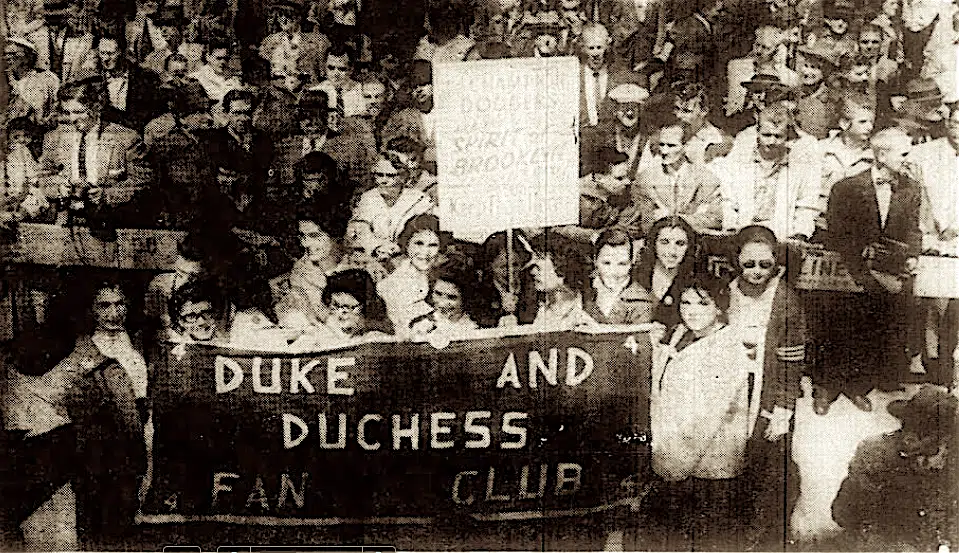 DODGERS
SPIRIT OF
BROOKLYN
LINE
4 4
DUKE AND
DUCHESS
FAN CLUB
4 4